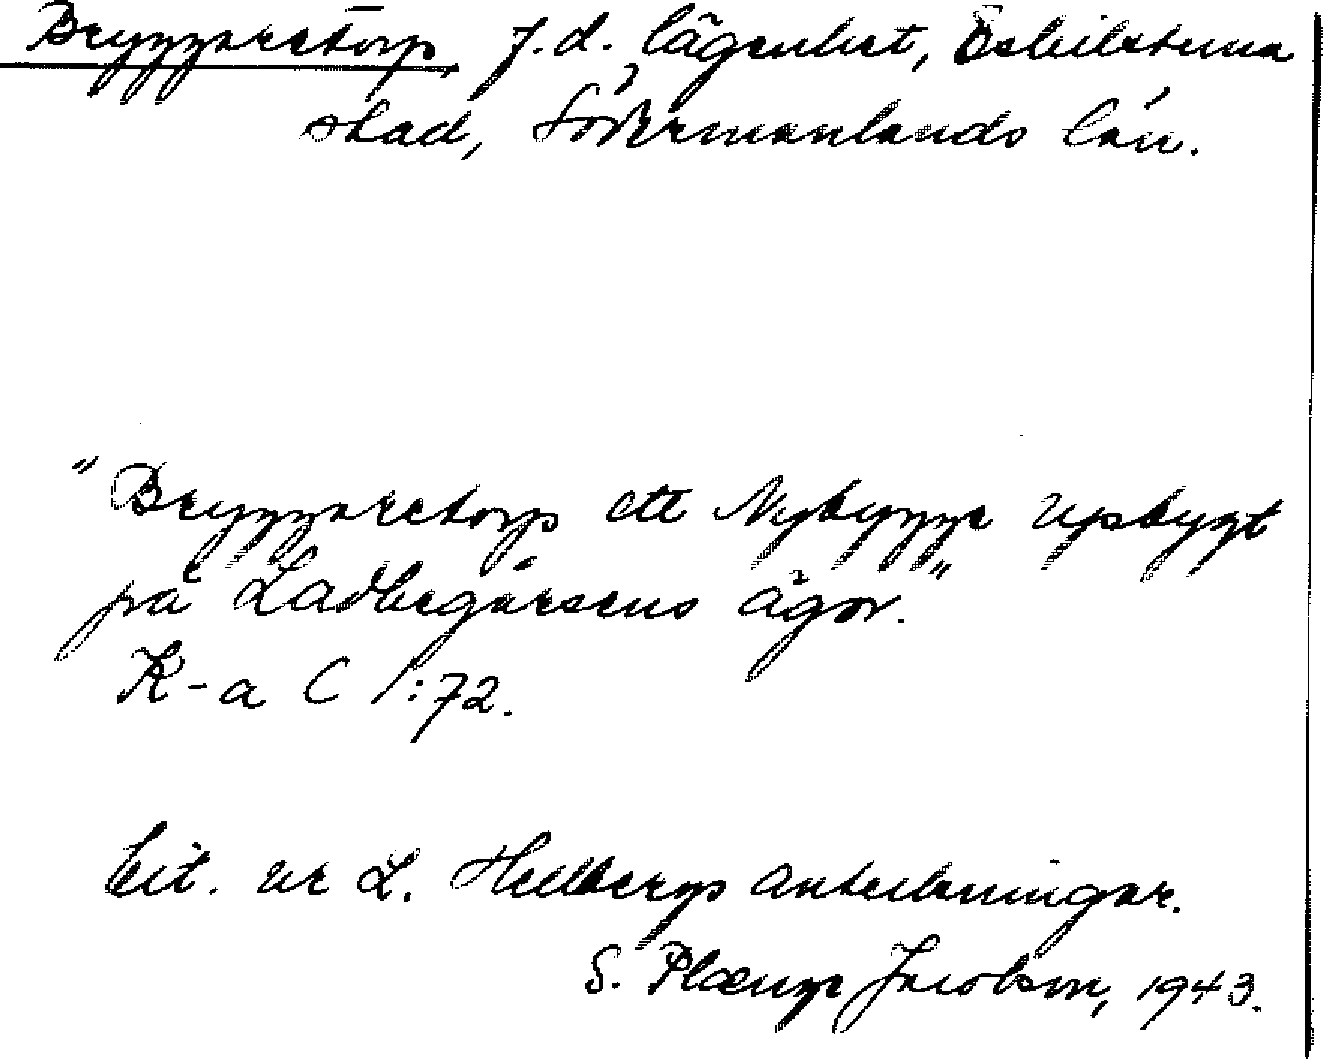 Bryggaretorp, f.d. lägenhet, Eskilstuna
stad, Södermanlands län.
"Bryggaretorp ett Nybygge upbygt
på Ladbegårsens ägor."
K-a C 1:72.
Cit. ur L. Hellbergs anteckningar.
S. Plænge Jacobson, 1943.